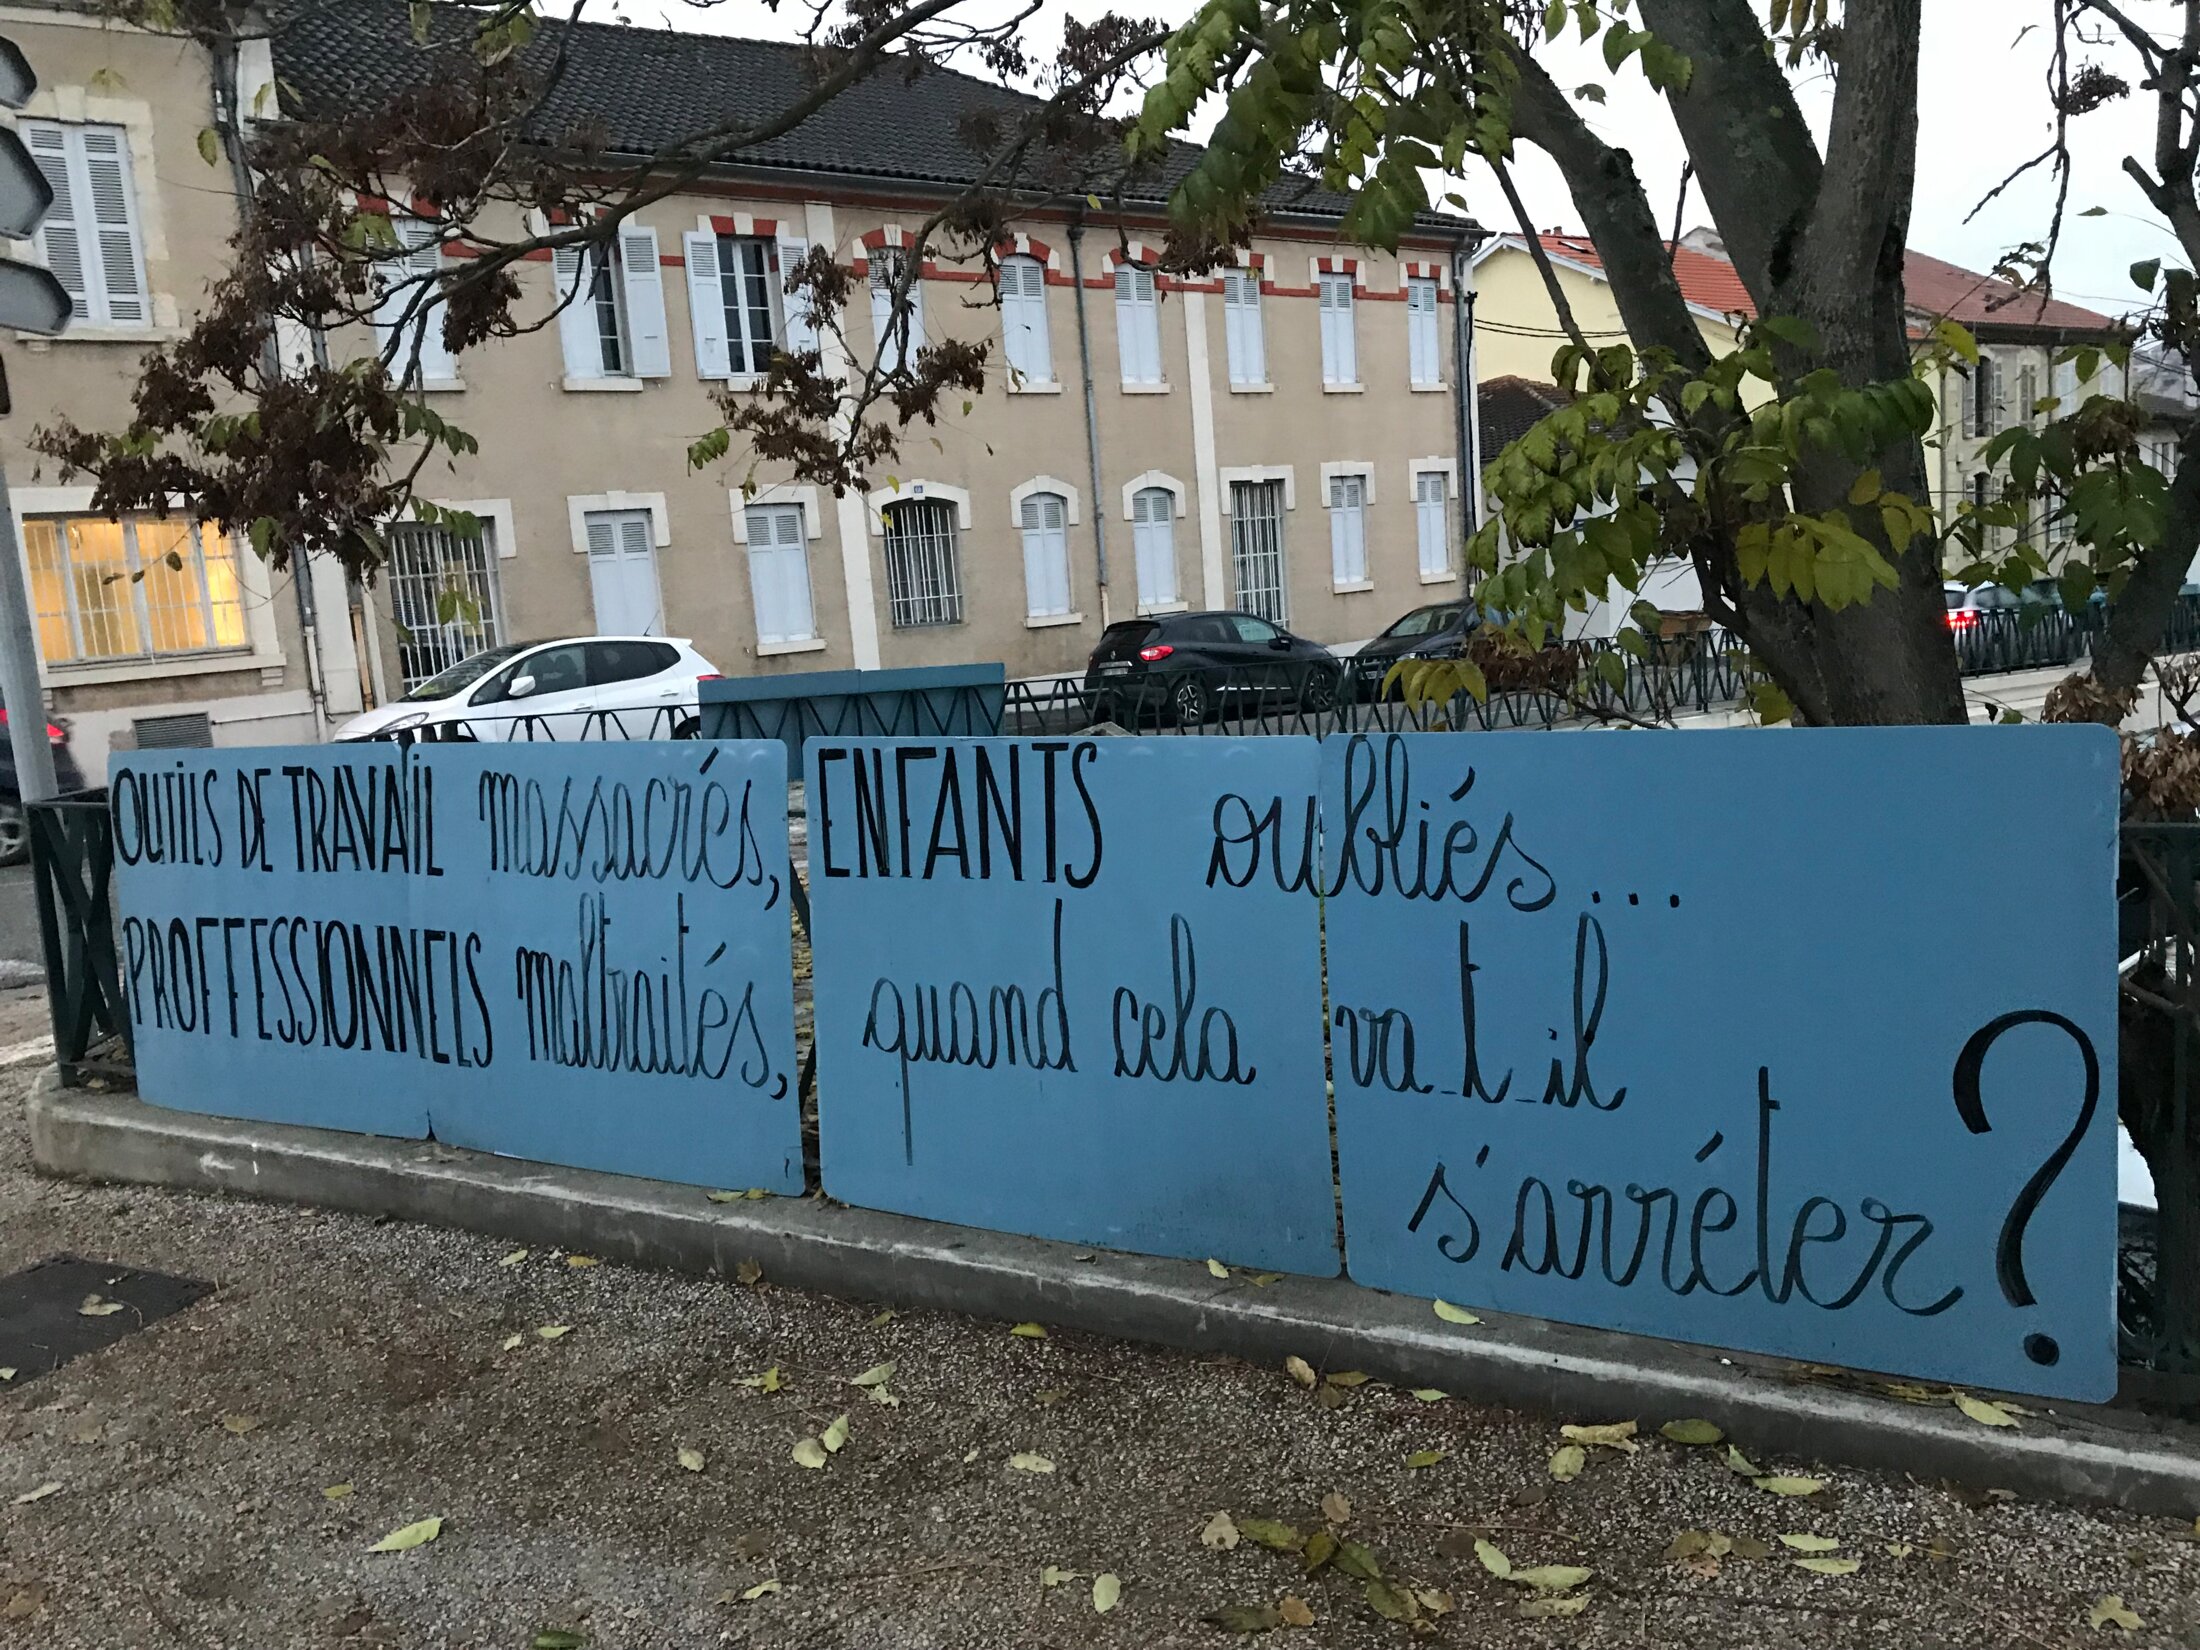 OUTILS DE TRAVAIL massacrés,
PROFFESSIONNELS maltraités,
ENFANTS oubliés...
quand cela va-t-il
s'arréter ?